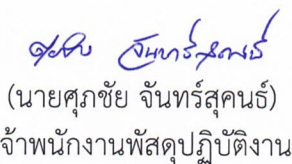 จันทร์สุคนธ์
(นายศุภชัย จันทร์สุคนธ์)
จ้าพนักงานพัสดุปฏิบัติงาน